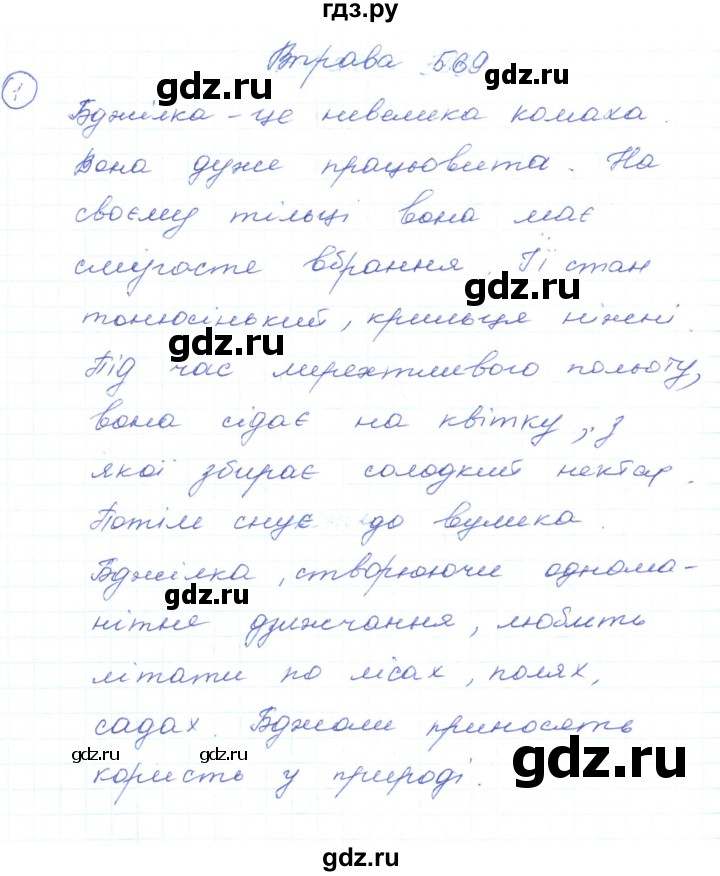 гдз.ру
Вправа 569
1
Бджілка - це невелика комаха.
Вона дуже працьовита. На
своєму тільці вона має
смугасте вбрання. Її стан
тонюсінький, крильця ніжні.
Під час мерехтливого польоту,
вона сідає на квітку, з
якої збирає солодкий нектар.
Потім снує до вулика.
Бджілка, створюючи однома-
нітне дзижчання, любить
літати по лісах, полях,
садах. Бджоли приносять
користь у природі.
gdz.ru
gdz.ru
gdz.ru
gdz.ru
gdz.ru
gdz.ru
gdz.ru
gdz.ru